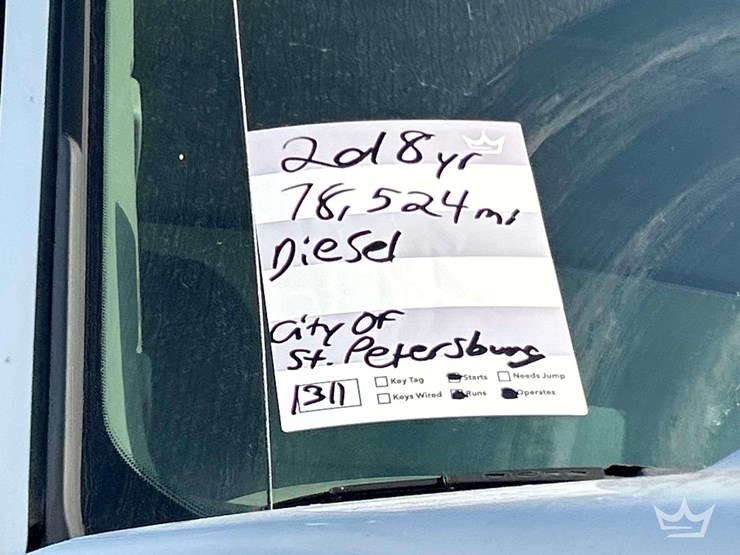 2018 yr
78,524 mi
Diesel
City Of
St. Petersburg
1311
Key Tag Starts Needs Jump
Keys Wired Runs Operates